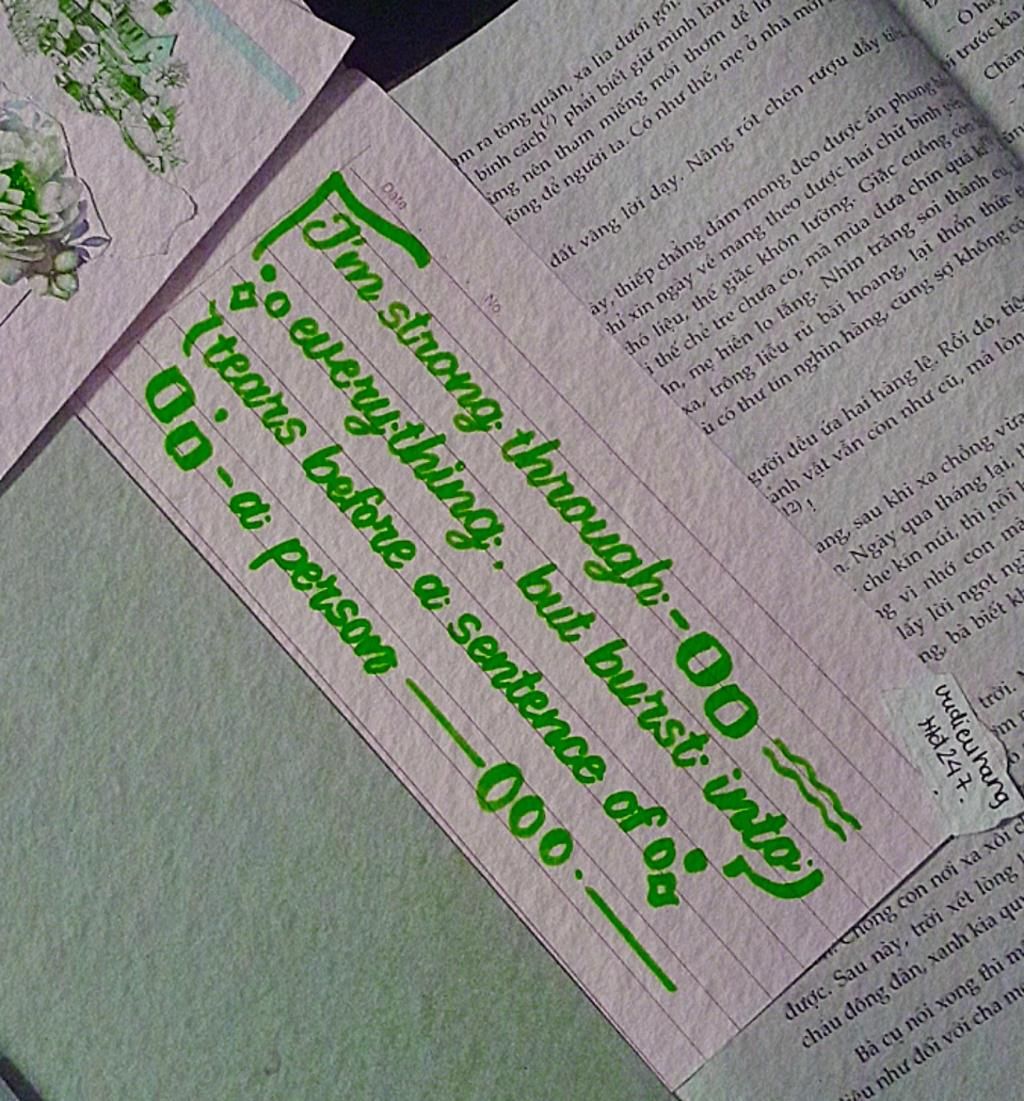 Date
No.
I'm strong through -
everything, but burst into
tears before a sentence of
- a person
vudieuhang
Hd247.
m ra tòng quân, xa lìa dưới gối.
phải biết giữ mình làm
nên tham miếng mồi thơm để lỡ
để người ta. Có như thế, mẹ ở nhà mới
đặt vàng lời dạy. Nàng rót chén rượu đầy tiễn
ày, thiếp chẳng dám mong đeo được ấn phong
chỉ xin ngày về mang theo được hai chữ bình yên
khó liệu, thế giặc khôn lường. Giặc cuồng còn
thế chẻ tre chưa có, mà mùa dưa chín quá kì
n, mẹ hiền lo lắng. Nhìn trăng soi thành cũ
xa, trông liễu rủ bãi hoang, lại thổn thức
ù có thư tín nghìn hàng, cũng sợ không có
gười đều ứa hai hàng lệ. Rồi đó, tiệc
cảnh vật vẫn còn như cũ, mà lòng
(2) !
ang, sau khi xa chồng vừa
n. Ngày qua tháng lại,
che kín núi, thì nỗi
vì nhớ con mà
lấy lời ngọt ng
ng, bà biết kh
trời.
Chồng con nơi xa xôi
được. Sau này, trời xét lòng
cháu đông đàn, xanh kia qu
Bà cụ nói xong thì m
liệu như đối với cha mẹ
trước kia
Chàng